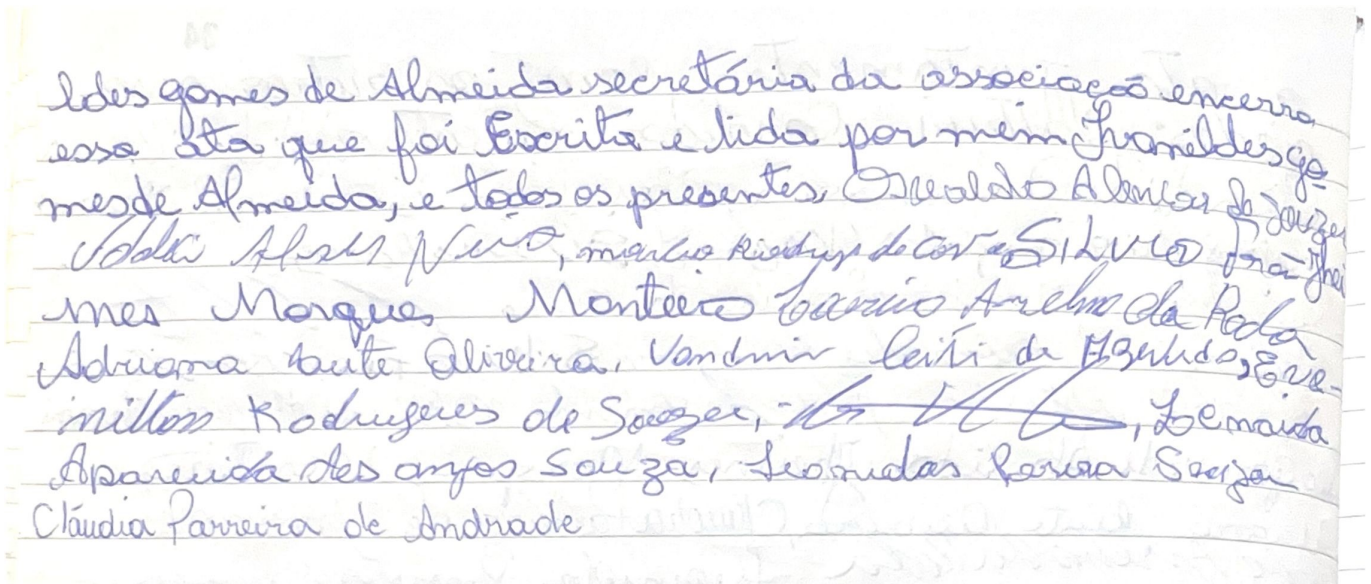 ldes gomes de Almeida secretária da associaçaõ encerro
essa ata que foi Escrita e lida por mim Ivanildes go
mes de Almeida, e todos os presentes, Osvaldo Alencar de Souza
Alves, marcio Rodrigues de SILVIO
mes Marques Monteiro Anselmo da
Adriana Leite Oliveira, Vandmir leiti de Azevedo, Eva-
nilton Rodrigues de Souza, Zemaida
Aparecida dos anjos Souza, Leonidas Pereira Souza
Cláudia Parreira de Andrade